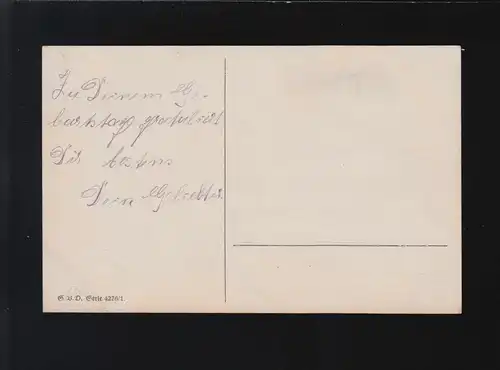 Zu Deinem Ge-
bartstag gratuliert
Dir bestens
Dein
G. B. D. Serie 4226/1.